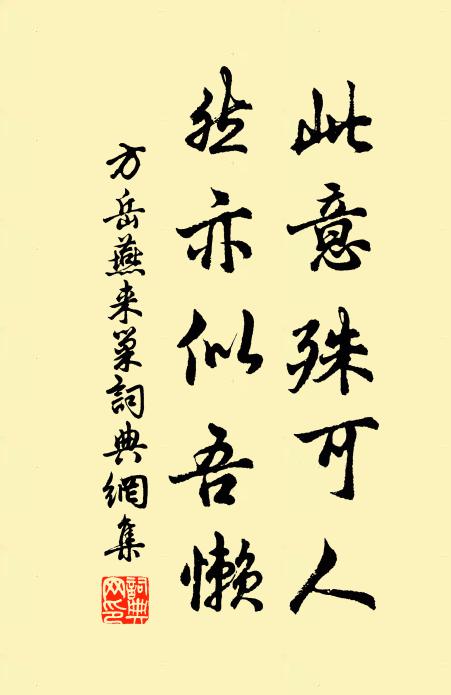 此意殊可人
然亦似吾懒
方岳燕来巢詞典網集
詞典
网印